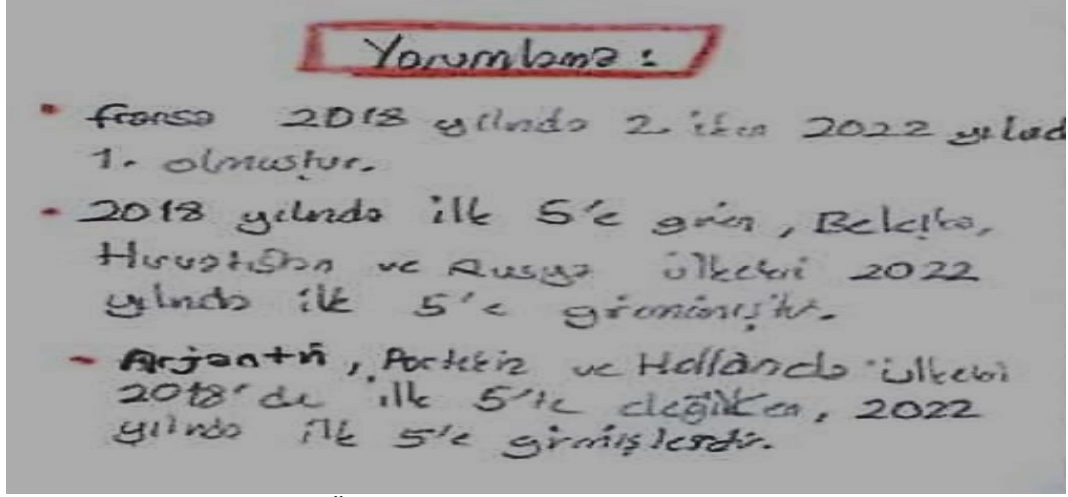 Yorumlama :
• Fransa 2018 yılında 2. iken 2022 yılınd
1. olmuştur.
• 2018 yılında ilk 5'e giren, Belçika,
Hırvatistan ve Rusya ülkeleri 2022
yılında ilk 5'e girmemiştir.
- Arjantin, Portekiz ve Hollanda ülkeleri
2018'de ilk 5'te değilken, 2022
yılında ilk 5'e girmişlerdir.